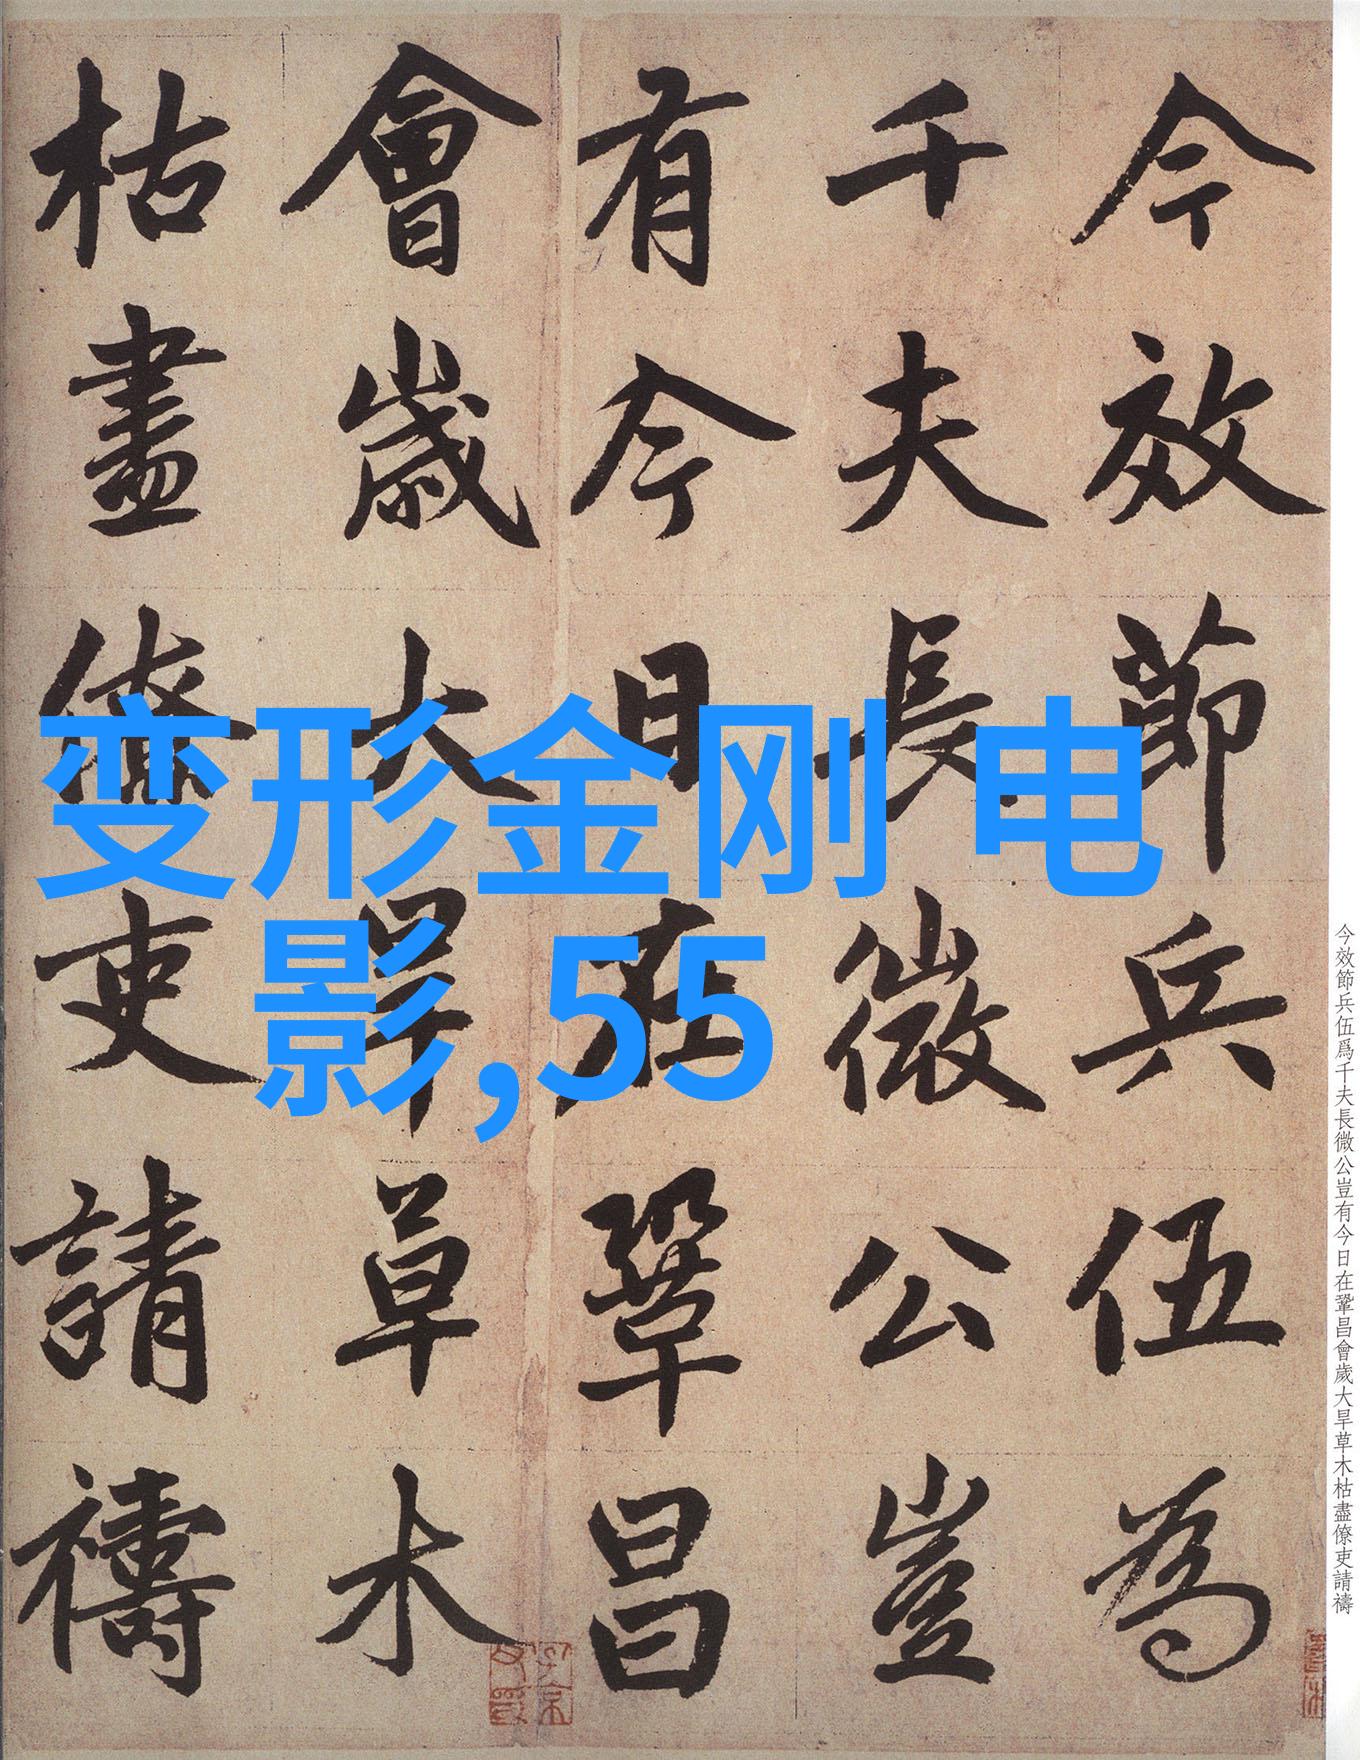 今效節兵伍爲千夫長微公豈有今日在鞏昌會歲大旱草木枯盡僚吏請禱
今效節兵伍為
千夫長微公豈
有今日在鞏昌
會歲大旱草木
枯盡僚吏請禱
变形金刚 电
影,55